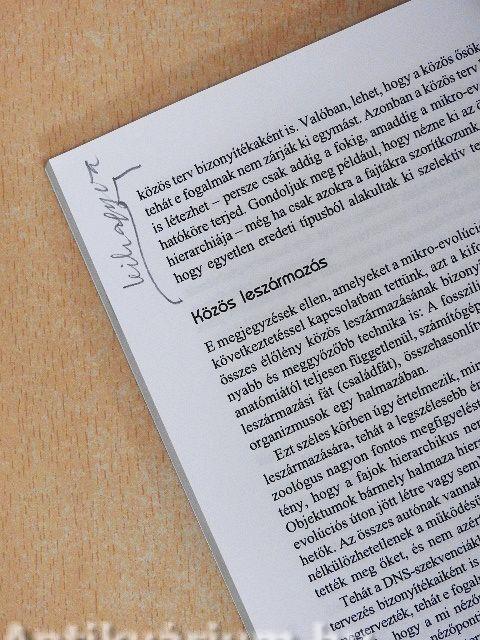 kihagyva
közös terv bizonyítékaként is. Valóban, lehet, hogy a közös ősök
tehát e fogalmak nem zárják ki egymást. Azonban a közös terv
is létezhet – persze csak addig a fokig, ameddig a mikro-ev
hatóköre terjed. Gondoljuk meg például, hogy nézne ki az
hierarchiája – még ha csak azokra a fajtákra szorítkozunk
hogy egyetlen eredeti típusból alakultak ki szelektív te
Közös leszármazás
E megjegyzések ellen, amelyeket a mikro-evolúció
következtetéssel kapcsolatban tettünk, azt a kifo
összes élőlény közös leszármazásának bizony
nyabb és meggyőzőbb technika is: A fosszili
anatómiától teljesen függetlenül, számítógép
leszármazási fát (családfát), összehasonlít
organizmusok egy halmazában.
Ezt széles körben úgy értelmezik, min
leszármazására, tehát a legszélesebb ér
zoológus nagyon fontos megfigyelést
tény, hogy a fajok hierarchikus ren
Objektumok bármely halmaza hier
evolúciós úton jött létre vagy sem
hetők. Az összes autónak vannak
nélkülözhetetlenek a működésü
tették meg őket, és nem azér
Tehát a DNS-szekvenciák
tervezés bizonyítékaiként is
megtervezték, tehát e fogal
hogy a mi nézőp
nézőpont
Antikvárium.hu